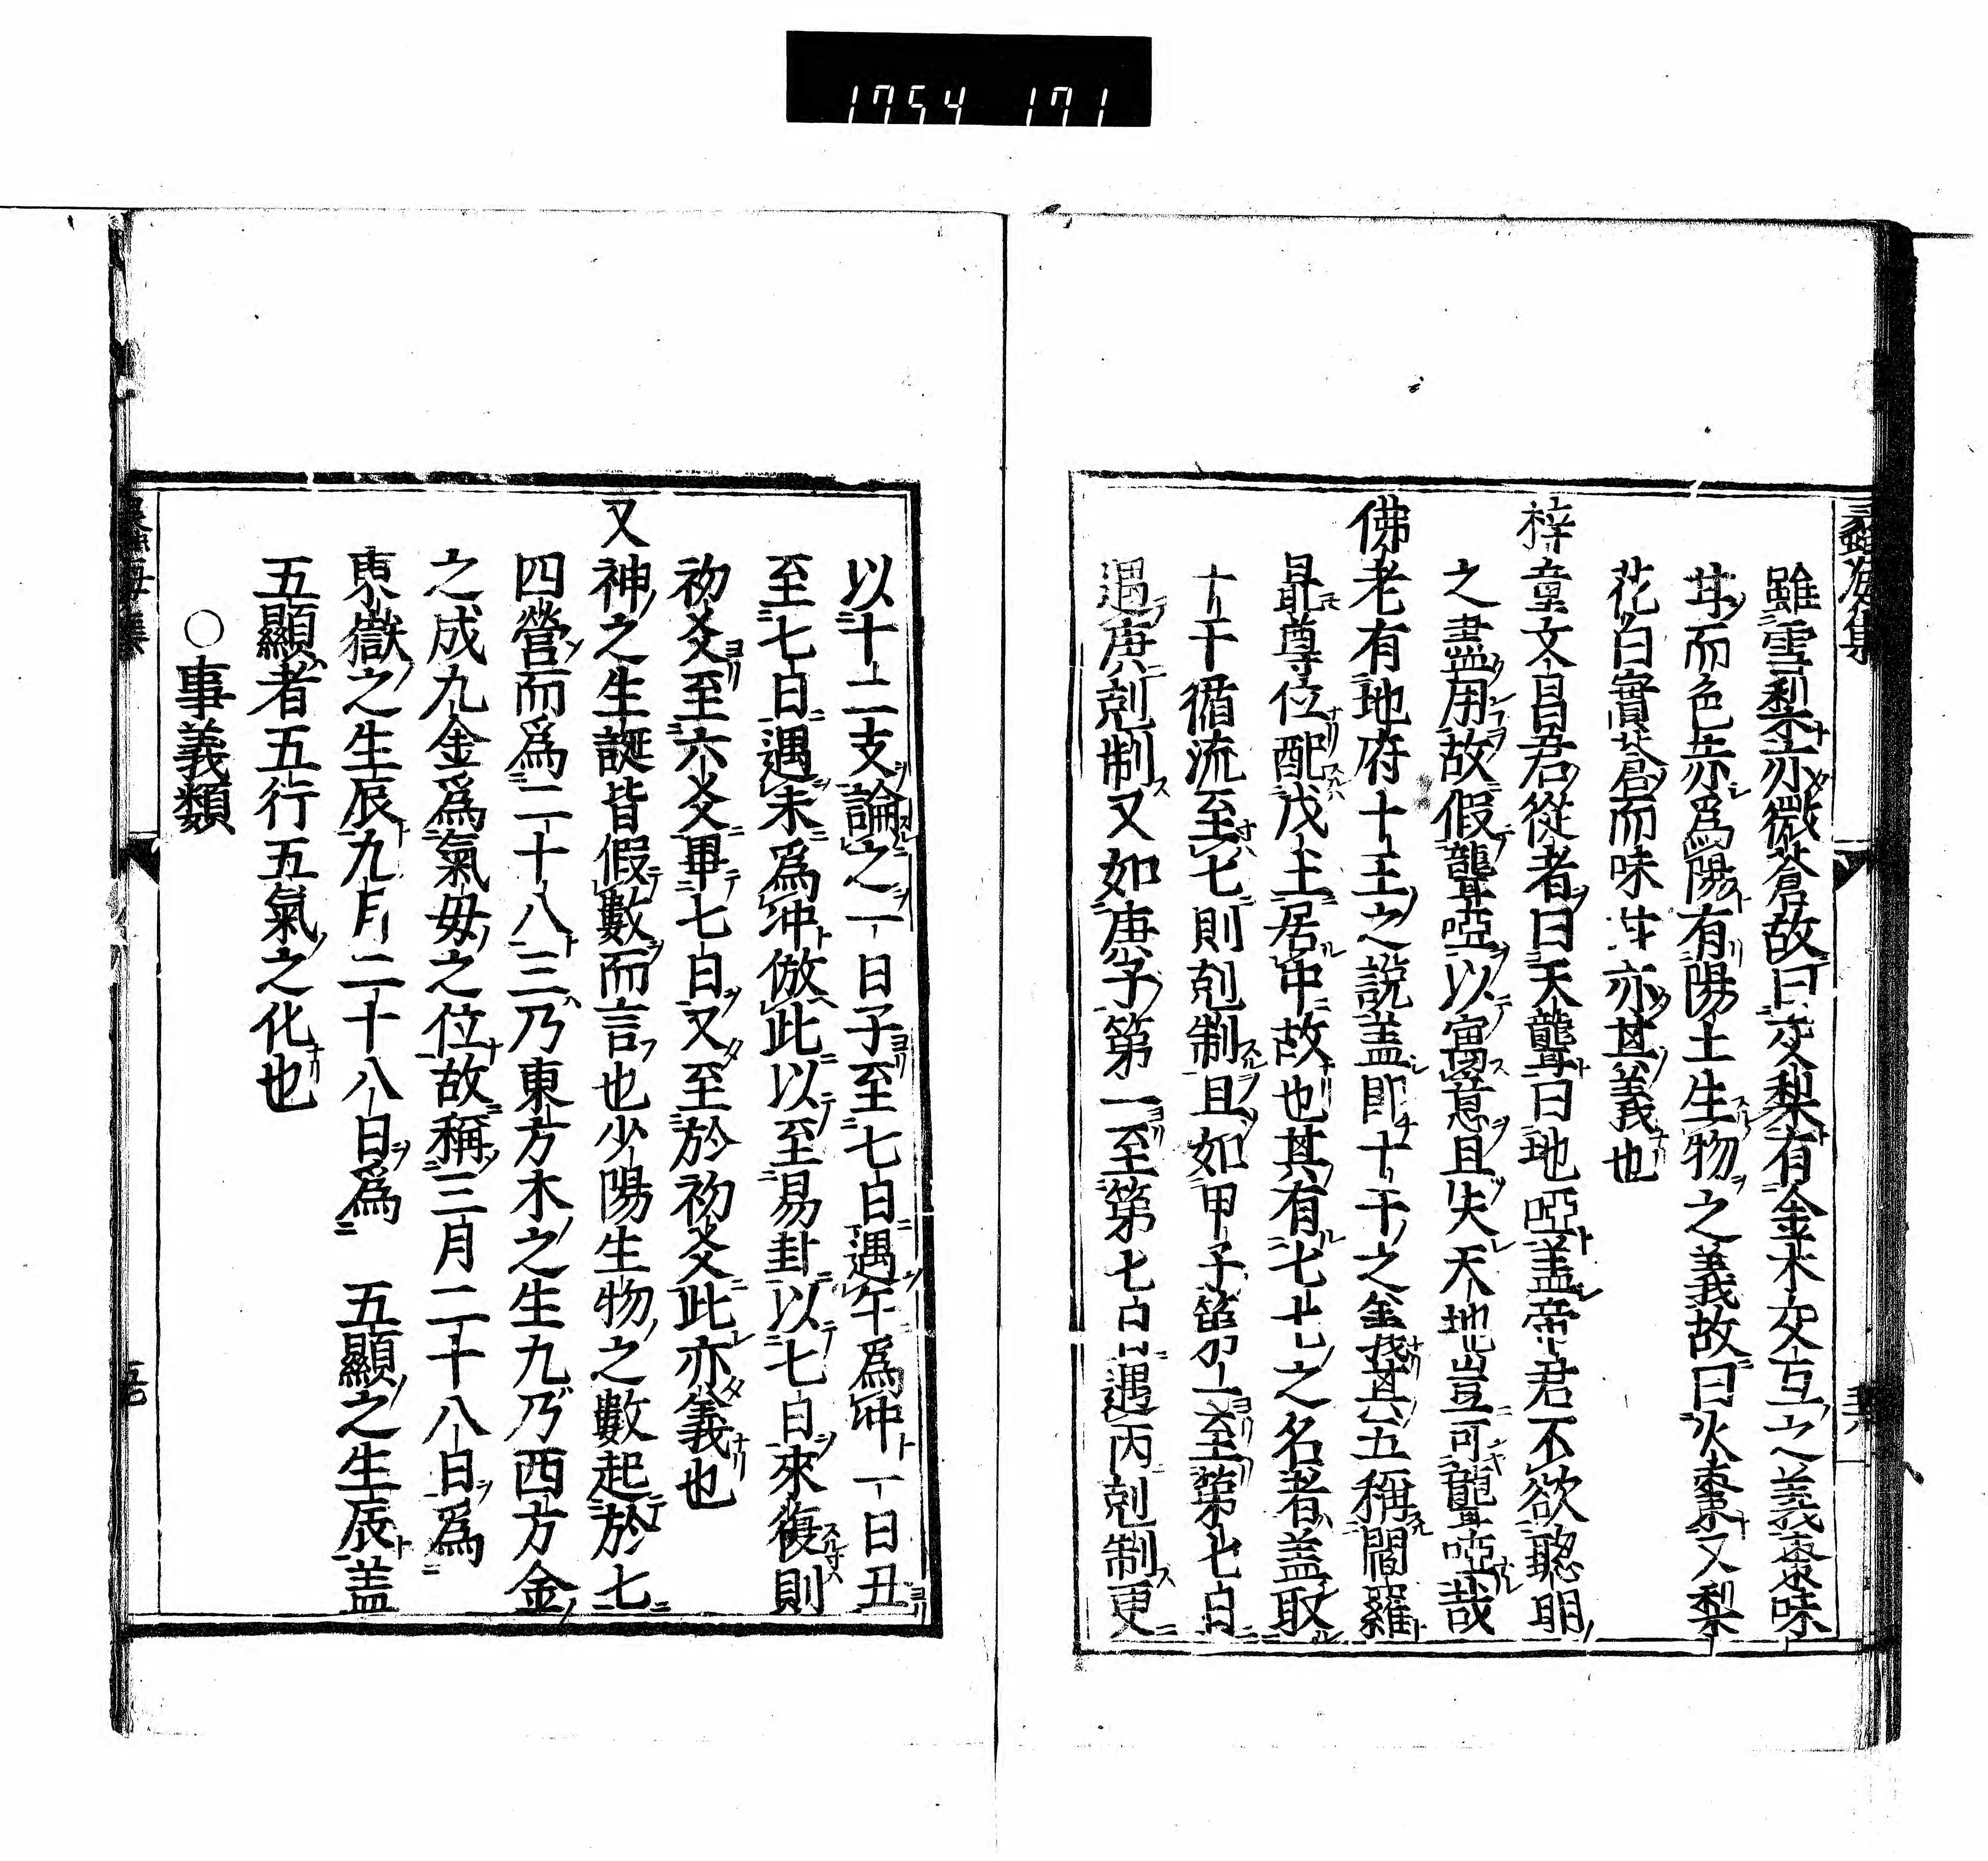 1754 171
蠡海集
雖雪梨亦微蒼故曰交梨有金木交互之義棗味
甘而色赤爲陽有陽土生物之義故曰火棗又梨
花白實蒼而味甘亦其義也
梓童文昌君從者曰天聾曰地啞盖帝君不欲聡明
之盡用故假聾啞以寓意且夫天地豈可聾啞哉
佛老有地府十王之說盖即十干之義其五稱閻羅
最尊位配戊土居中故也其有七七之名者盖取
十干循流至七則剋制且如甲子第一至第七日
遇庚剋制又如庚子第一至第七日遇丙剋制更
以十二支論之一日子至七日遇午爲冲一日丑
至七日遇未爲冲倣此以至易卦以七日來復則
初爻至六爻畢七日又至於初爻此亦義也
又神之生誕皆假數而言也少陽生物之數起於七
四營而爲二十八三乃東方木之生九乃西方金
之成九金爲氣毋之位故稱三月二十八日爲
東嶽之生辰九月二十八日爲　五顯之生辰盖
五顯者五行五氣之化也
○事義類